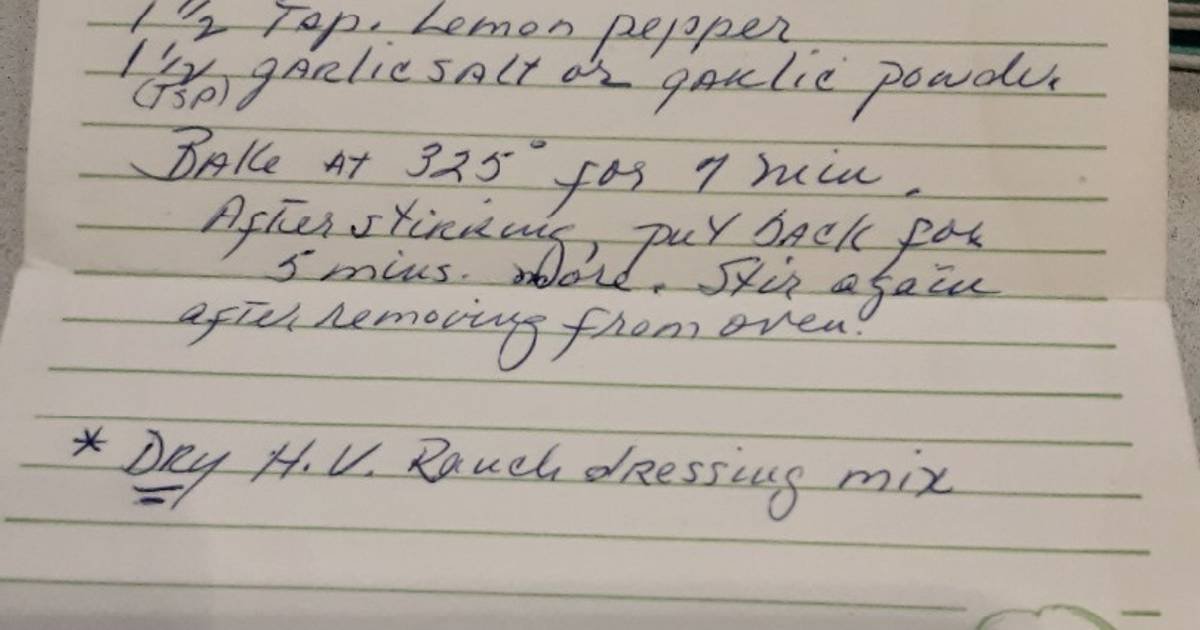 1 1/2 Tsp. Lemon pepper
1 1/2 gARlic SAlt or gARlic powder
(TSP)
BAKe AT 325° for 7 min.
After stirring, put BACK for
5 mins. more. Stir again
after removing from oven.
* DRy H.V. Ranch dRessing mix